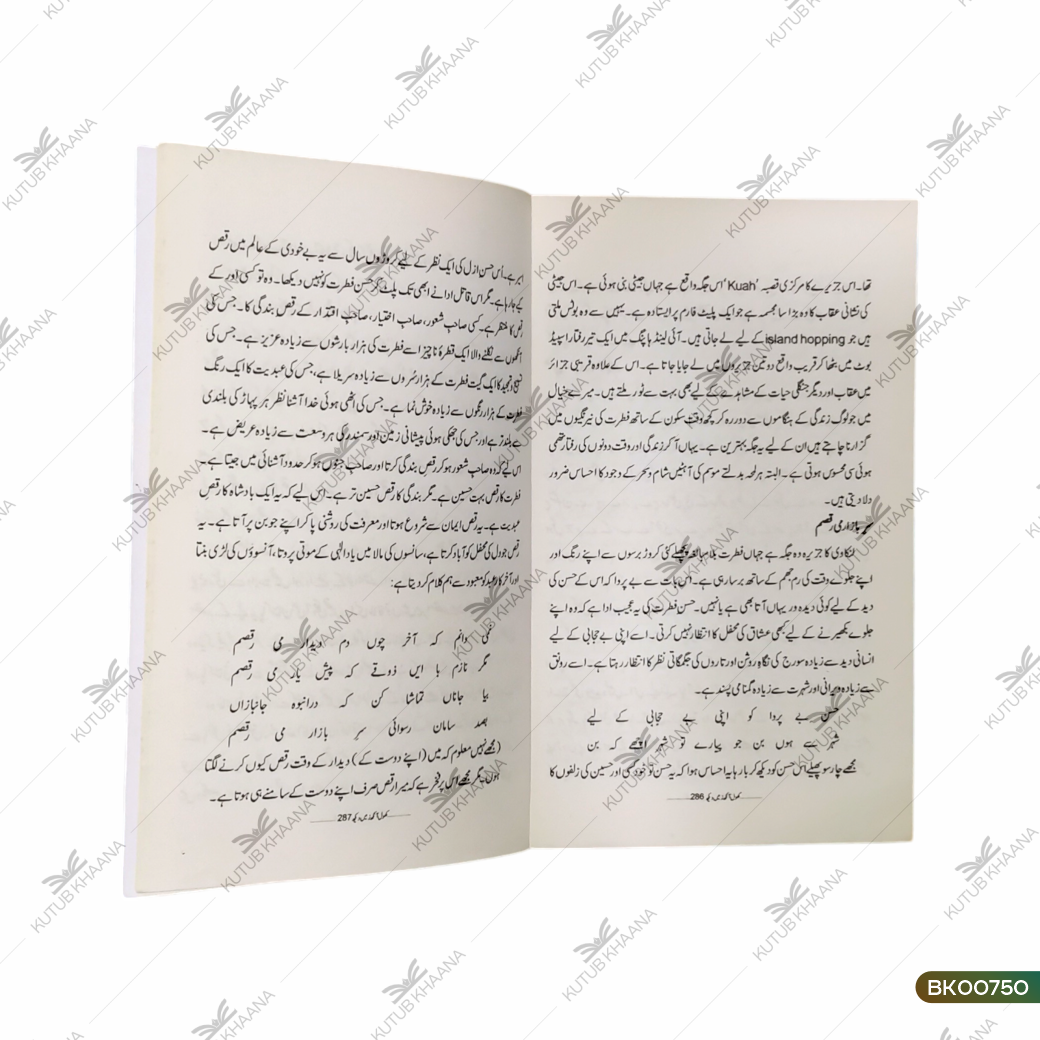 تھا۔ اس جزیرے کا مرکزی قصبہ 'Kuah' اس جگہ واقع ہے جہاں جیٹی بنی ہوئی ہے۔ اس جیٹی
کی نشانی عقاب کا وہ بڑا سا مجسمہ ہے جو ایک پلیٹ فارم پر ایستادہ ہے۔ یہیں سے وہ بوٹس ملتی
ہیں جو island hopping کے لیے لے جاتی ہیں۔ آئی لینڈ ہاپنگ میں ایک تیز رفتار اسپیڈ
بوٹ میں بٹھا کر قریب واقع دو تین جزیروں میں لے جایا جاتا ہے۔ اس کے علاوہ قریبی جزائر
میں عقاب اور دیگر جنگلی حیات کے مشاہدے کے لیے بھی بہت سے ٹور ملتے ہیں۔ میرے خیال
میں جو لوگ زندگی کے ہنگاموں سے دور رہ کر کچھ وقت سکون کے ساتھ فطرت کی نیرنگیوں میں
گزارنا چاہتے ہیں ان کے لیے یہ جگہ بہترین ہے۔ یہاں آ کر زندگی اور وقت دونوں کی رفتار تھمی
ہوئی سی محسوس ہوتی ہے۔ البتہ ہر لمحہ بدلتے موسم کی آہٹیں شام و سحر کے وجود کا احساس ضرور
دلا دیتی ہیں۔
سر بازار می رقصم
لنکاوی کا جزیرہ وہ جگہ ہے جہاں فطرت بلا مبالغہ پچھلے کئی کروڑ برسوں سے اپنے رنگ اور
اپنے جلوے وقت کی رم جھم کے ساتھ برسا رہی ہے۔ اس بات سے بے پروا کہ اس کے حسن کی
دید کے لیے کوئی دیدہ ور یہاں آتا بھی ہے یا نہیں۔ حسن فطرت کی یہ عجیب ادا ہے کہ وہ اپنے
جلوے بکھیرنے کے لیے کبھی عشاق کی محفل کا انتظار نہیں کرتی۔ اسے اپنی بے حجابی کے لیے
انسانی دید سے زیادہ سورج کی نگاہِ روشن اور تاروں کی جگمگاتی نظر کا انتظار رہتا ہے۔ اسے رونق
سے زیادہ ویرانی اور شہرت سے زیادہ گمنامی پسند ہے۔
حسن بے پروا کو اپنی بے حجابی کے لیے
ہوں شہر سے بن جو پیارے تو شہر اچھے کہ بن
مجھے چار سو پھیلے اس حسن کو دیکھ کر بارہا یہ احساس ہوا کہ یہ حسن تو خود کسی اور حسین کی زلفوں کا
کھول آنکھ زمیں دیکھ 286
اسیر ہے۔ اُس حسن ازل کی ایک نظر کے لیے کروڑوں سال سے یہ بے خودی کے عالم میں رقص
کیے جا رہا ہے۔ مگر اس قاتل ادا نے ابھی تک پلٹ کر حسن فطرت کو نہیں دیکھا۔ وہ تو کسی اور کے
رقص کا منتظر ہے۔ کسی صاحب شعور، صاحب اختیار، صاحب اقتدار کے رقص بندگی کا۔ جس کی
آنکھوں سے نکلنے والا ایک قطرۂ ناچیز اسے فطرت کی ہزار بارشوں سے زیادہ عزیز ہے۔ جس کی
تسبیح و تمجید کا ایک گیت فطرت کے ہزار سُروں سے زیادہ سریلا ہے، جس کی عبدیت کا ایک رنگ
فطرت کے ہزار رنگوں سے زیادہ خوش نما ہے۔ جس کی اٹھی ہوئی خدا آشنا نظر ہر پہاڑ کی بلندی
سے بلند تر ہے اور جس کی جھکی ہوئی پیشانی زمین اور سمندر کی ہر وسعت سے زیادہ عریض ہے۔
اس لیے کہ وہ صاحب شعور ہو کر رقص بندگی کرتا اور صاحب جنوں ہو کر حدود آشنائی میں جیتا ہے۔
فطرت کا رقص بہت حسین ہے۔ مگر بندگی کا رقص حسین تر ہے۔ اس لیے کہ یہ ایک بادشاہ کا رقص
عبدیت ہے۔ یہ رقص ایمان سے شروع ہوتا اور معرفت کی روشنی پا کر اپنے جوبن پر آتا ہے۔ یہ
رقص جو دل کی محفل کو آباد کرتا ہے، سانسوں کی مالا میں یاد الٰہی کے موتی پروتا، آنسوؤں کی لڑی بنتا
اور آخر کار عبد کو معبود سے ہم کلام کر دیتا ہے:
نمی دانم کہ آخر چوں دم دیدار می رقصم
مگر نازم با ایں ذوقے کہ پیش یار می رقصم
بیا جاناں تماشا کن کہ در انبوہ جانبازاں
بصد سامان رسوائی سر بازار می رقصم
(مجھے نہیں معلوم کہ میں (اپنے دوست کے) دیدار کے وقت رقص کیوں کرنے لگتا
ہوں۔ مگر مجھے اس پر فخر ہے کہ میرا رقص صرف اپنے دوست کے سامنے ہی ہوتا ہے۔
کھول آنکھ زمیں دیکھ 287
KUTUB KHAANA
BK00750